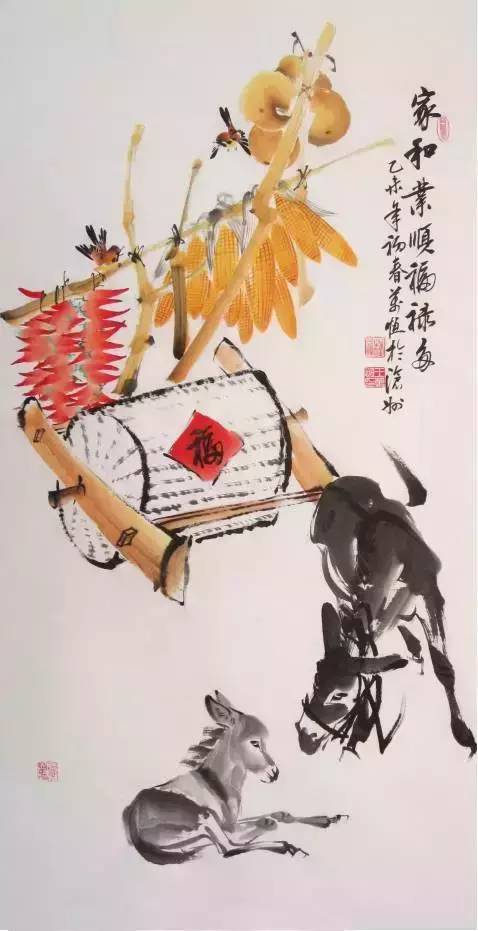 家和業順福禄多
乙未年初春萬恒於滄州
福